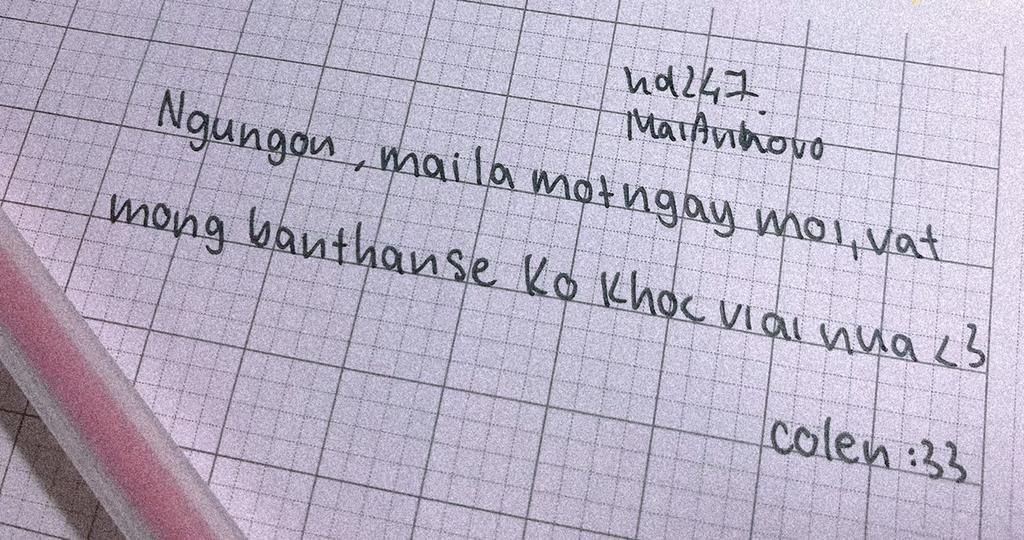 nd247.
MaiAnhovo
Ngungon, mai la motngay moi, vat
mong banthanse ko khoc vi ai nua <3
colen :33